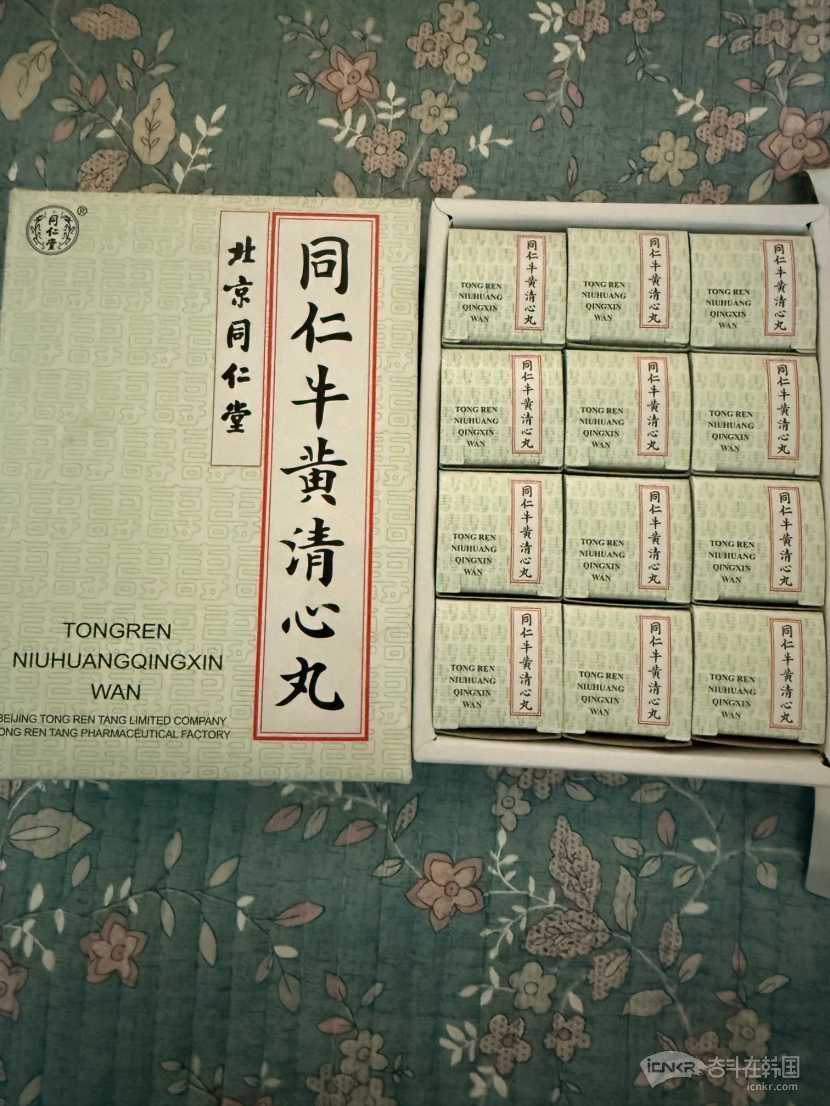 同仁堂
®
北京同仁堂
同仁牛黄清心丸
TONGREN
NIUHUANGQINGXIN
WAN
BEIJING TONG REN TANG LIMITED COMPANY
TONG REN TANG PHARMACEUTICAL FACTORY
TONG REN
NIUHUANG
QINGXIN
WAN
同仁牛黄清心丸
TONG REN
NIUHUANG
QINGXIN
WAN
同仁牛黄清心丸
TONG REN
NIUHUANG
QINGXIN
WAN
同仁牛黄清心丸
TONG REN
NIUHUANG
QINGXIN
WAN
同仁牛黄清心丸
TONG REN
NIUHUANG
QINGXIN
WAN
同仁牛黄清心丸
TONG REN
NIUHUANG
QINGXIN
WAN
同仁牛黄清心丸
TONG REN
NIUHUANG
QINGXIN
WAN
同仁牛黄清心丸
TONG REN
NIUHUANG
QINGXIN
WAN
同仁牛黄清心丸
TONG REN
NIUHUANG
QINGXIN
WAN
同仁牛黄清心丸
TONG REN
NIUHUANG
QINGXIN
WAN
同仁牛黄清心丸
TONG REN
NIUHUANG
QINGXIN
WAN
同仁牛黄清心丸
TONG REN
NIUHUANG
QINGXIN
WAN
同仁牛黄清心丸
iCNKR 奋斗在韩国
icnkr.com